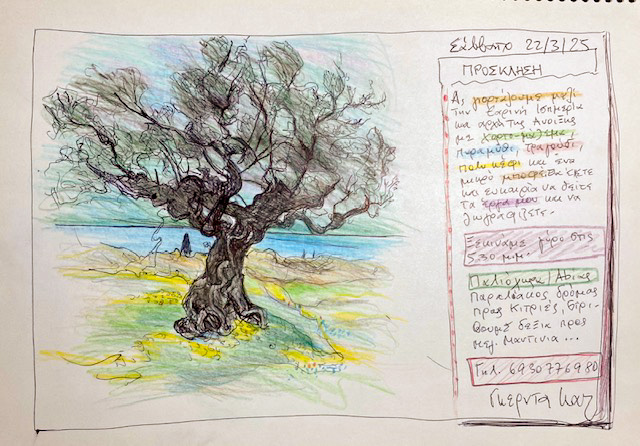 Σάββατο 22/3/25
ΠΡΟΣΚΛΗΣΗ
Α, γιορτάζουμε μαζί
την Εαρινή Ισημερία
και αρχή της Άνοιξης
με
παραμύθι, τραγούδι
πολύ κέφι και ένα
μικρό μπουφέ. Θα έχετε
και ευκαιρία να δείτε
τα έργα μου και να
ζωγραφίζετε.
Ξεκινάμε γύρω στις
5.30 μ.μ.
Παλιόχωρα Αβίας
Παραλιακός δρόμος
προς Κιτριές, στρί-
βουμε δεξιά προς
Μεγ. Μαντίνια ...
Τηλ. 6930776980
Γκέρντα